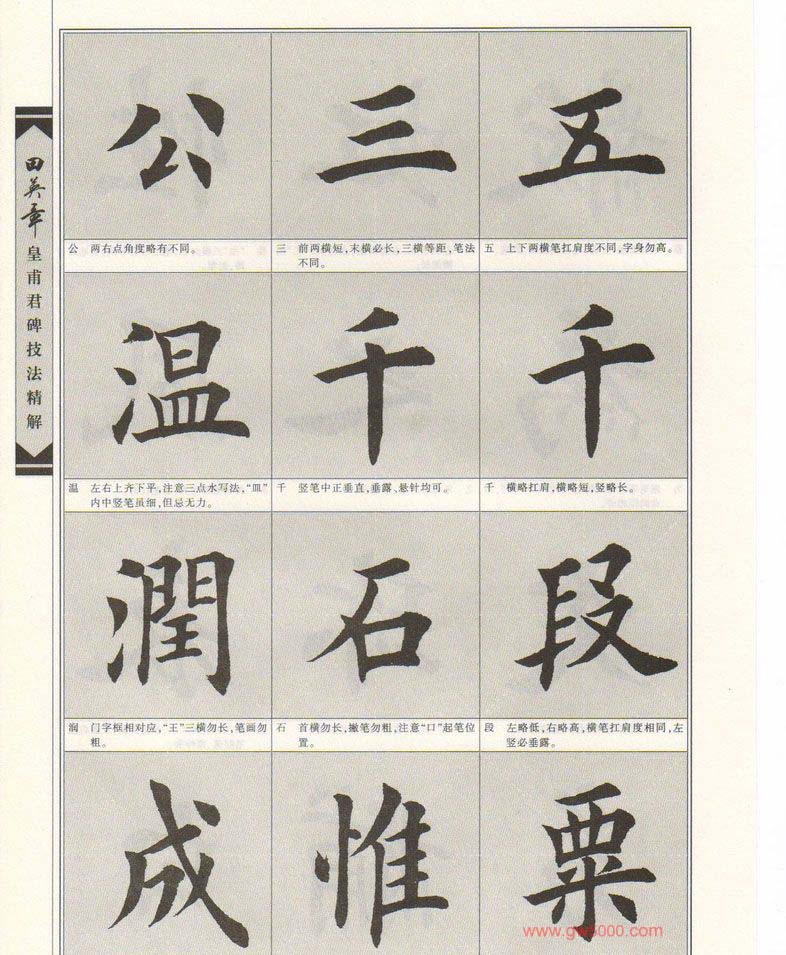 田英章
皇甫君碑技法精解
公 三 五
公 两右点角度略有不同。
三 前两横短，末横必长，三横等距，笔法
不同。
五 上下两横笔扛肩度不同，字身勿高。
温 千 千
温 左右上齐下平，注意三点水写法，“皿”
内中竖笔虽细，但忌无力。
千 竖笔中正垂直，垂露、悬针均可。
千 横略扛肩，横略短，竖略长。
潤 石 段
润 门字框相对应，“王”三横勿长，笔画勿
粗。
石 首横勿长，撇笔勿粗，注意“口”起笔位
置。
段 左略低，右略高，横笔扛肩度相同，左
竖必垂露。
成 惟 粟
www.gw5000.com